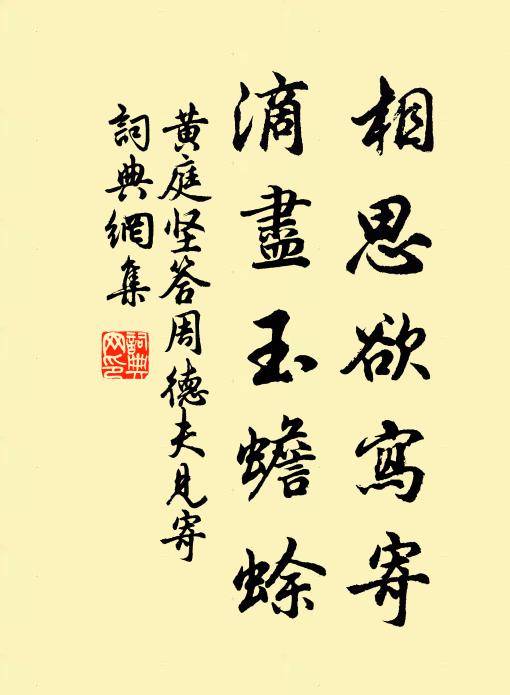 相思欲寫寄
滴盡玉蟾蜍
黄庭坚答周德夫見寄
詞典網集
詞典
网印